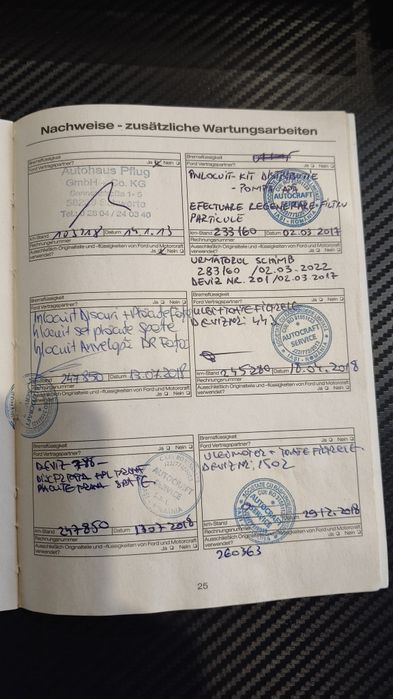 Nachweise - zusätzliche Wartungsarbeiten
Bremsflüssigkeit
Ford Vertragspartner? Ja Nein
Autohaus Pflug
GmbH + Co. KG
km-Stand 103118 Datum 14.1.13
Rechnungsnummer
Ausschließlich Originalteile und -flüssigkeiten von Ford und Motorcraft
verwendet? Ja Nein
INLOCUIT KIT DISTRIBUTIE
- POMPA APA
EFECTUARE REGENERARE FILTRU
PARTICULE
IASI - ROMANIA
km-Stand 233160 Datum 02.03.2017
Rechnungsnummer
Ausschließlich Originalteile und -flüssigkeiten von Ford und Motorcraft
verwendet? Ja Nein
URMATORUL SCHIMB
283160 /02.03.2022
DEVIZ NR. 201/02.03.2017
Bremsflüssigkeit
Ford Vertragspartner? Ja Nein
Inlocuit Discuri + Placute Fata
Inlocuit set placute Spate
Inlocuit Anvelope
km-Stand 247850 Datum 13.07.2018
Rechnungsnummer
Ausschließlich Originalteile und -flüssigkeiten von Ford und Motorcraft
verwendet? Ja Nein
ULEI + TOATE FILTRELE
DEVIZ NR:
AUTOCRAFT
SERVICE
IASI - ROMANIA
km-Stand 245280 Datum
Rechnungsnummer
Ausschließlich Originalteile und -flüssigkeiten von Ford und Motorcraft
verwendet? Ja Nein
Bremsflüssigkeit
Ford Vertragspartner? Ja Nein
DEVIZ
km-Stand 247850 Datum 13.07.2018
Rechnungsnummer
Ausschließlich Originalteile und -flüssigkeiten von Ford und Motorcraft
verwendet? Ja Nein
Bremsflüssigkeit
Ford Vertragspartner? Ja Nein
ULEI MOTOR + TOATE FILTRELE
DEVIZ NR: 1502
AUTOCRAFT
km-Stand 29.12.2018
Rechnungsnummer
Ausschließlich Originalteile und -flüssigkeiten von Ford und Motorcraft
verwendet? Ja Nein
260363
25